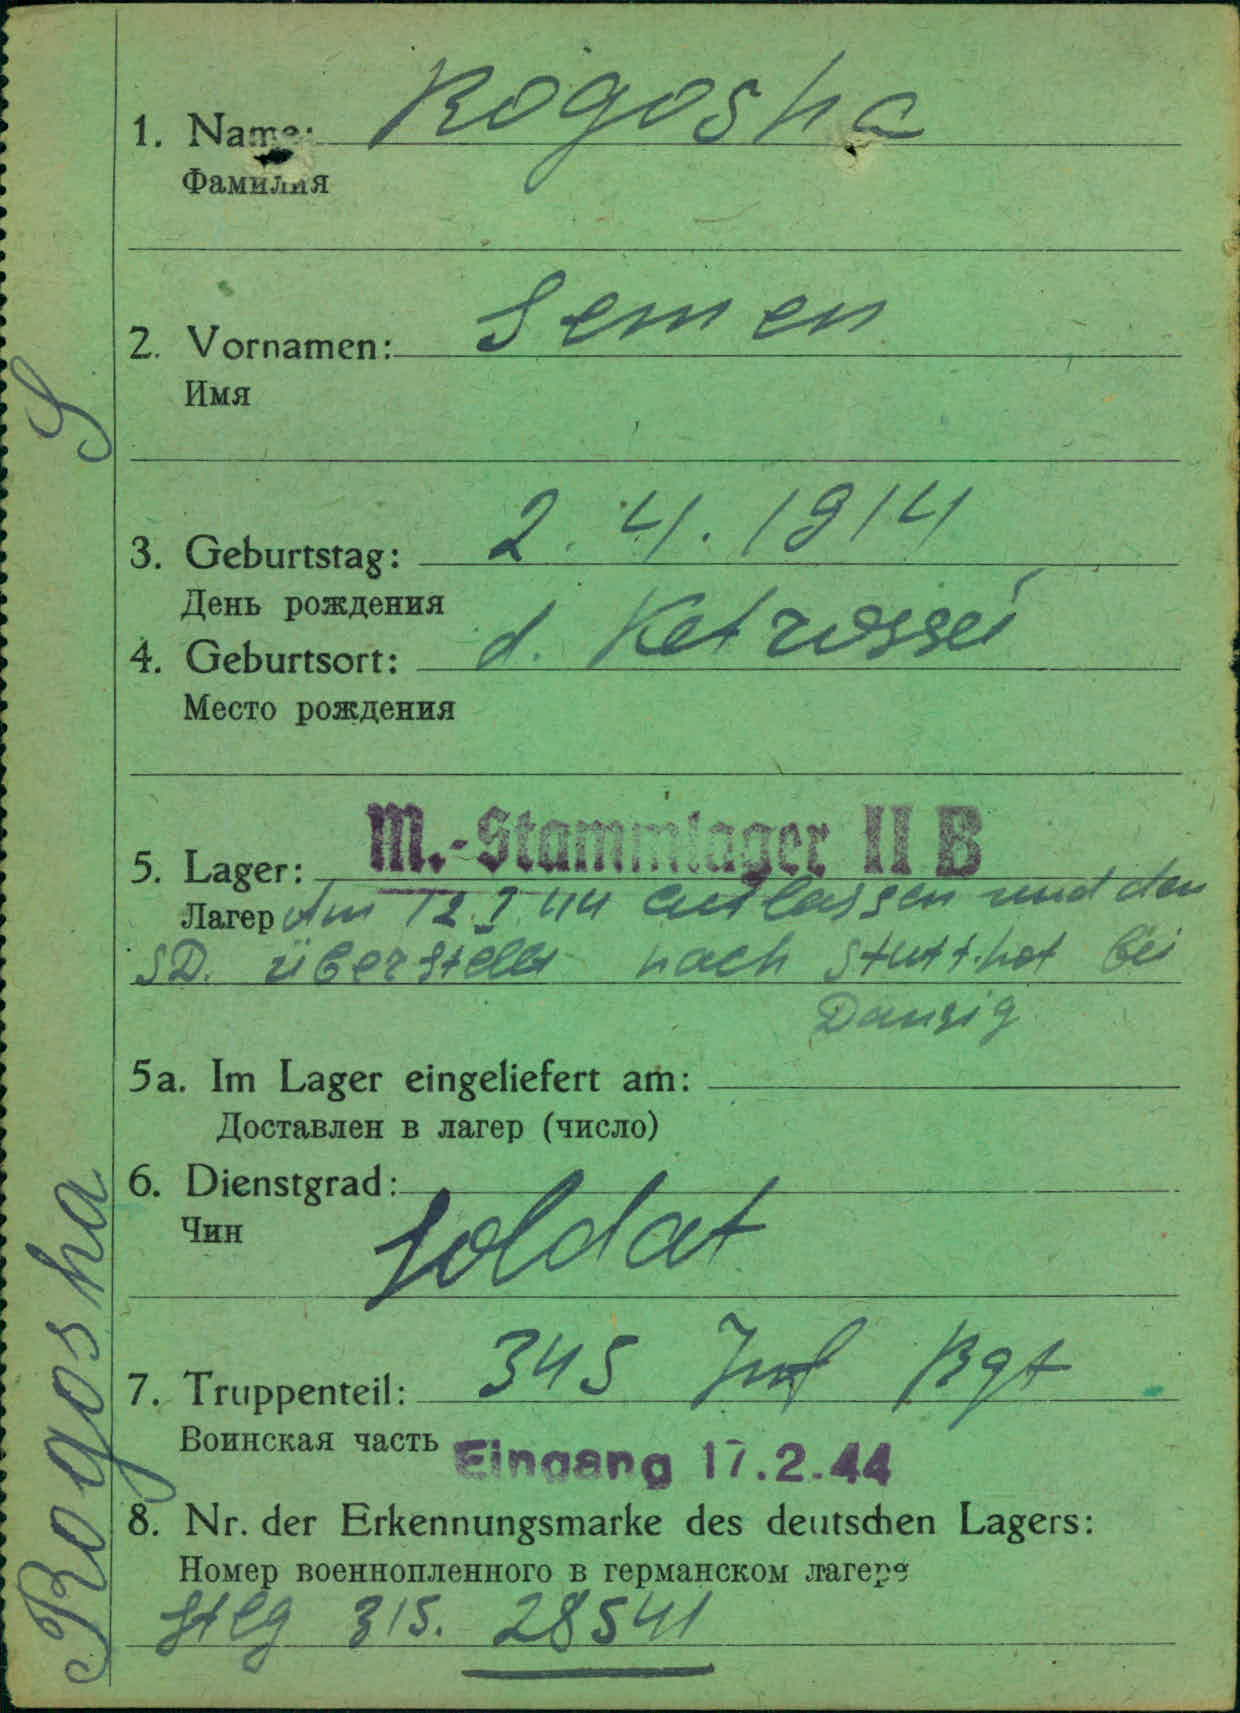 1. Name: Rogosha
Фамилия
2. Vornamen: Semen
Имя
3. Geburtstag: 2. 4. 1914
День рождения
4. Geburtsort: d. Ketrossi
Место рождения
5. Lager: M.-Stammlager II B
Лагер Am 12.I.44 entlassen und dem
SD. überstellt nach Stutthof bei
Danzig
5a. Im Lager eingeliefert am:
Доставлен в лагер (число)
6. Dienstgrad: Soldat
Чин
7. Truppenteil: 345 Inf Rgt
Воинская часть Eingang 17.2.44
8. Nr. der Erkennungsmarke des deutschen Lagers:
Номер военнопленного в германском лагере
Stlg 315. 28541
Rogosha S